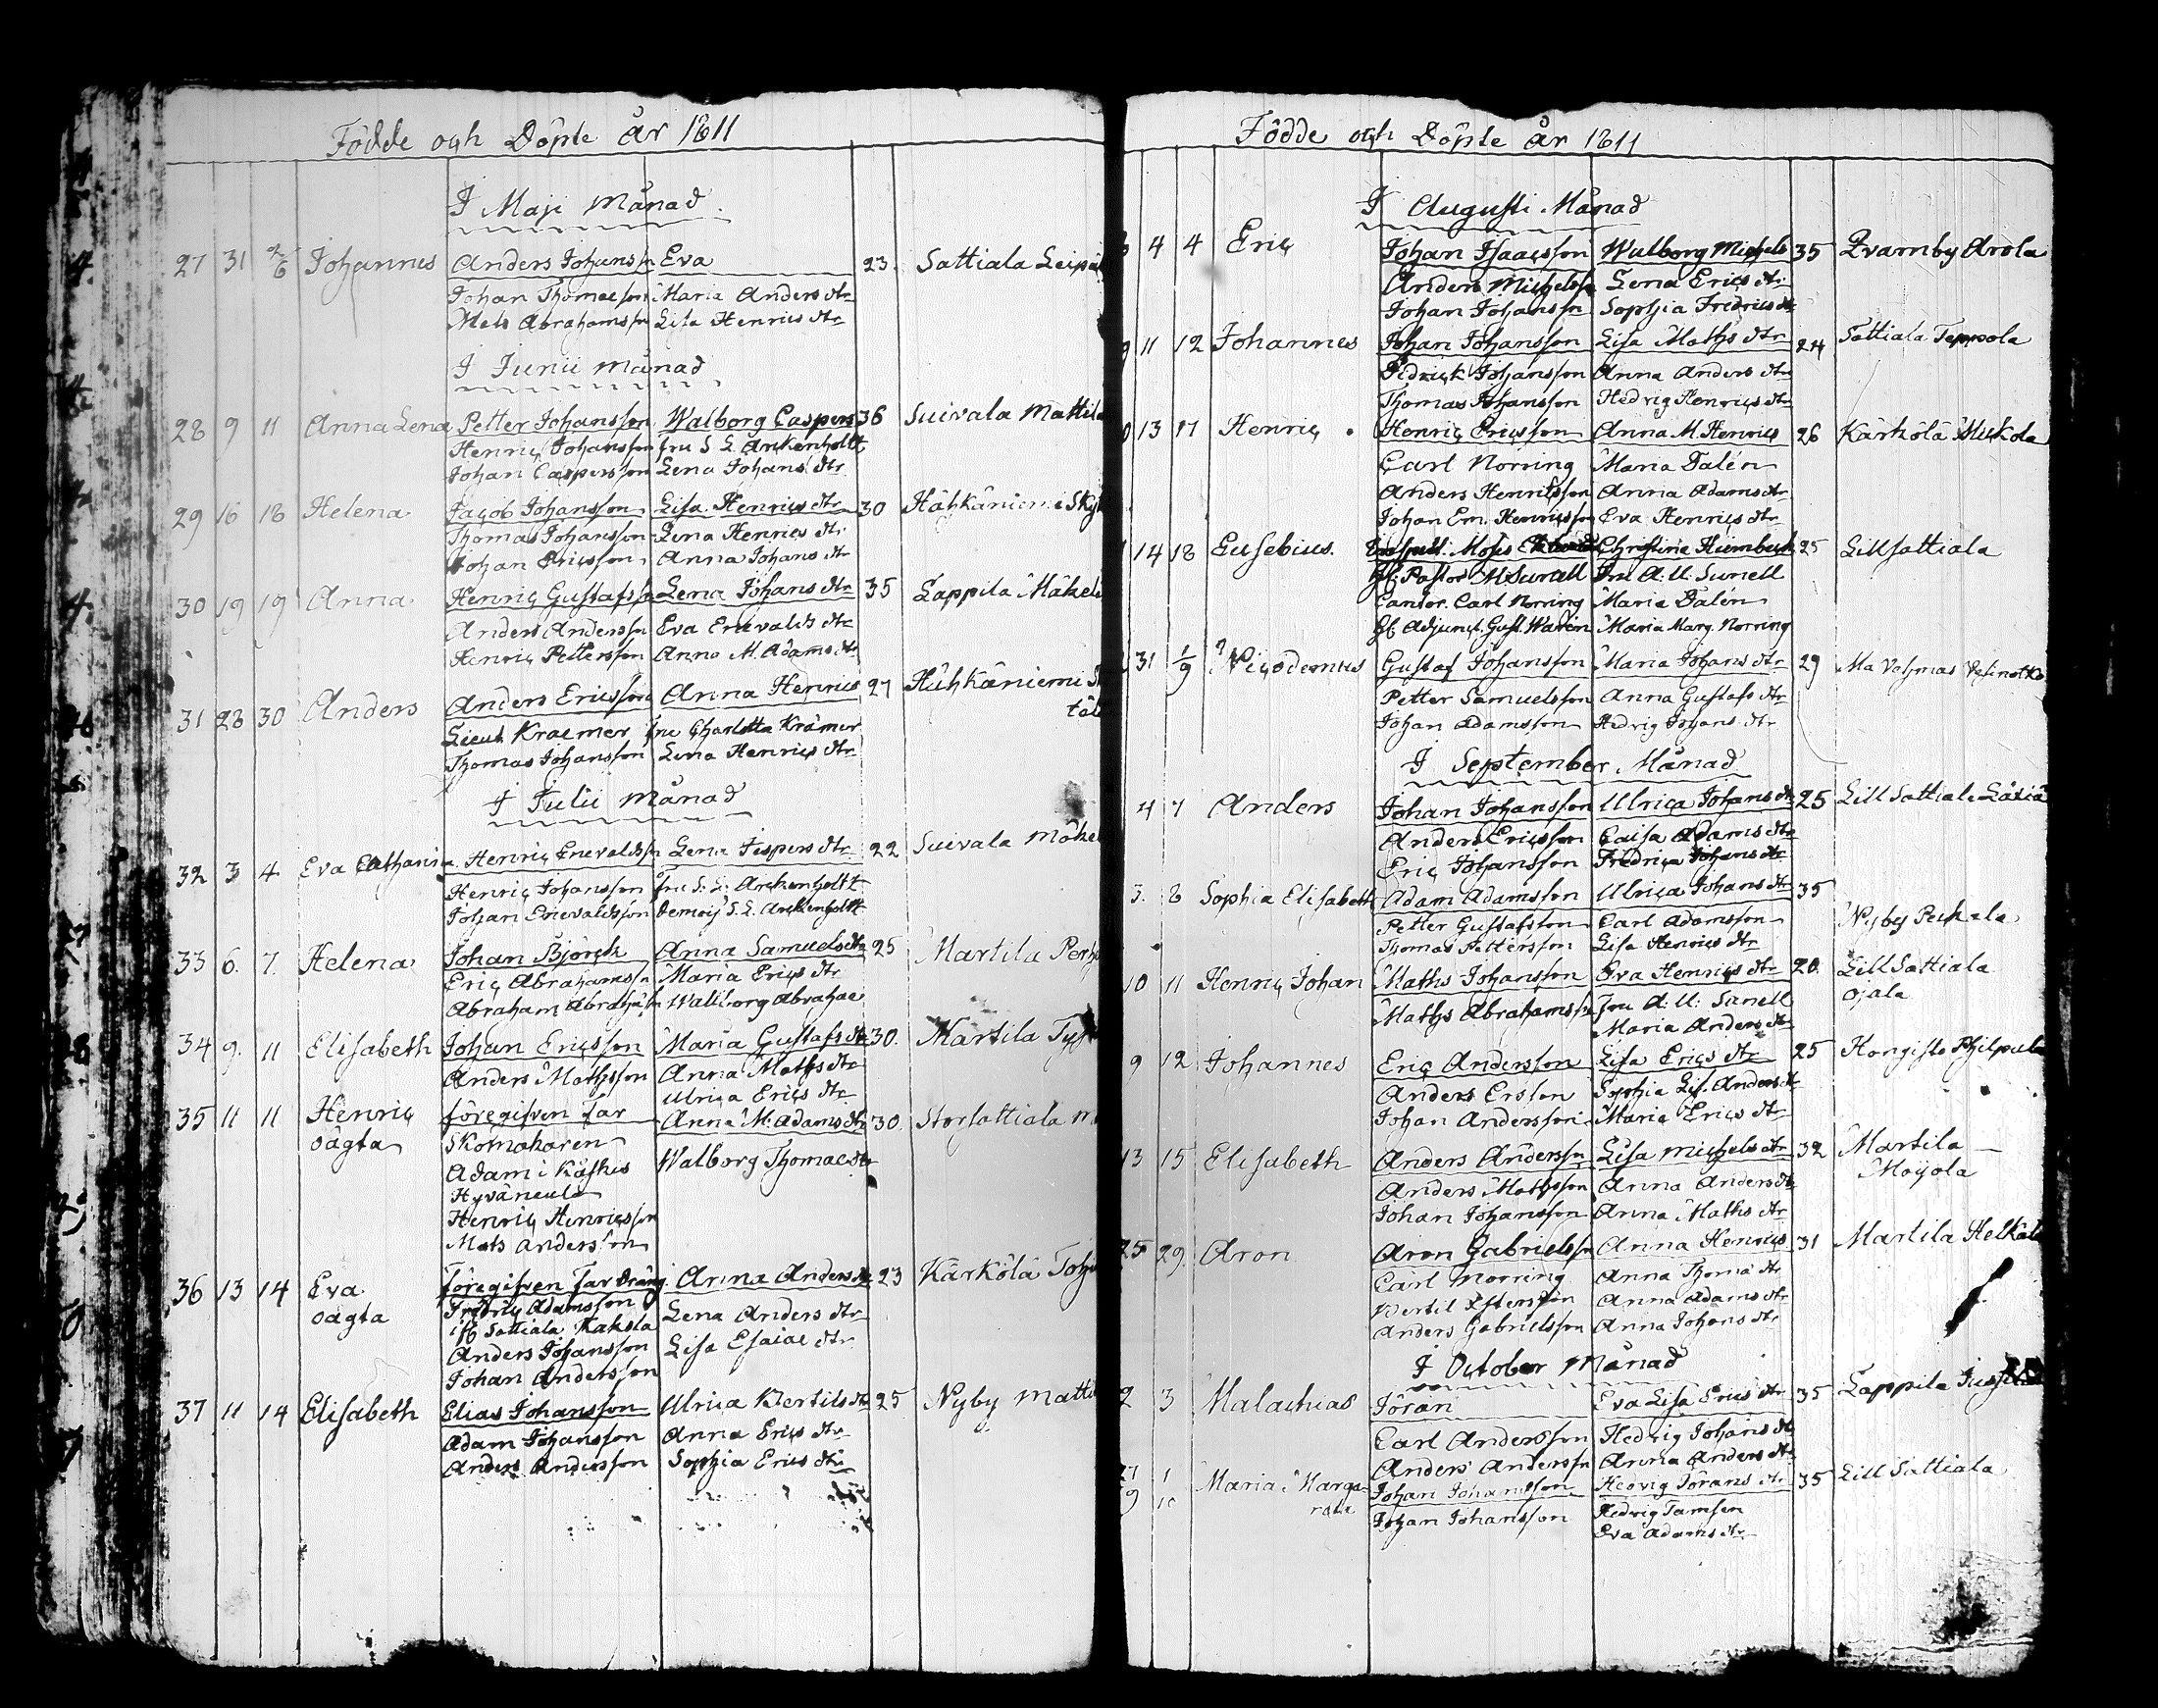 Födde och Döpte år 1811
I Maji månad
27 31 2/6 Johannes Anders Johanss:n Eva 23. Sattiala
Johan Thomasson Maria Anders dtr
Mats Abrahamss:n Lisa Henrics dtr
I Junii månad
28 9 11 Anna Lena Petter Johansson Walborg Caspers 36 Suivala Mattila
Henric Johansson fru S L. Arkenholtt
Johan Caspersson Lena Johans dtr
29 16 18 Helena Jacob Johansson Lisa Henrics dtr 30
Thomas Johansson Lena Henrics dtr
Johan Ericsson Anna Johans dtr
30 19 19 Anna Henric Gustafss:n Lena Johans dtr 35 Lappila
Anders Anderss:n Eva Enevalds dtr
Henric Pettersson Anna M. Adams dtr
31 28 30 Anders Anders Ericsson Anna Henrics 27 Hähkäniemi
Lieut Kraemer fru Charlotta Krämer
Thomas Johansson Lena Henrics dtr
I Julii månad
32 3 4. Eva Catharina Henric Enevaldss:n Lena Jespers dtr 22 Suivala
Henric Johansson fru S. L. Arckenholtt
Johan Enevaldsson Demois S. L. Arckenholtt
33 6. 7. Helena Johan Björck Anna Samuels dtr 25 Martila
Eric Abrahamss:n Maria Erics dtr
Abraham Abrahamss:n Wallborg Abrahae
34 9. 11 Elisabeth Johan Ericsson Maria Gustafs dtr 30. Martila
Anders Mathsson Anna Maths dtr
Ulrica Erics dtr
35 11 11 Henric föregifven far Anna M. Adams dtr 30. Storsattiala
oägta Skomakaren Walborg Thomae dtr
Adam i Kåskis
Hyväneula
Henric Henricsson
Mats Andersson
36 13 14 Eva föregifven far dräng Anna Anders dtr 23 Kärkölä
oägta Fredric Adamsson Lena Anders dtr
Sattiala Kaksla
Anders Johansson Lisa Esaiae dtr
Johan Andersson
37 11 14 Elisabeth Elias Johansson Ulrica Bertils dtr 25 Nyby
Adam Johansson Anna Erics dtr
Anders Andersson Sophia Erics dtr
Födde och Döpte år 1811
I Augusti Månad
4 4 Eric Johan Isaacsson Walborg Michels 35 Qvarnby Arola
Anders Michelss:n Lena Erics dtr
Johan Johanss:n Sophia Fredrics dtr
11 12 Johannes Johan Johansson Lisa Maths dtr 24 Sattiala Teppola
Fredrick Johansson Anna Anders dtr
Thomas Johansson Hedvig Henrics dtr
13 17 Henric Henric Ericsson Anna M. Henrics 26 Kärkölä Uckola
Carl Norring Maria Dalén
Anders Henricsson Anna Adams dtr
Johan Em. Henricsson Eva Henrics dtr
14 18 Eusebius. Moses Christina 25 Lillsattiala
Pastor M Sunell Fru A. U. Sunell
Cantor. Carl Norring Maria Dalén
Adjunct. Gust. Wadén Maria Marg. Norring
31 1/9 Nicodemus Gustaf Johansson Maria Johans dtr 29
Petter Samuelsson Anna Gustafs dtr
Johan Adamsson Hedvig Johans dtr
I September Månad
4 7 Anders Johan Johansson Ulrica Johans dtr 25 Lill Sattiala
Anders Ericsson Caisa Adams dtr
Eric Johansson Fredrica Johans dtr
3. 8 Sophia Elisabeth Adam Adamsson Ulrica Johans dtr 35
Petter Gustafsson Carl Adamsson Nyby
Thomas Pettersson Lisa Henrics dtr
10 11 Henric Johan Maths Johansson Eva Henrics dtr 20. Lill Sattiala
Maths Abrahamss:n fru A. U. Sunell Ojala
Maria Anders dtr
9 12 Johannes Eric Andersson Lisa Erics dtr 25 Hongisto
Anders Ersson Sophia Lis. Anders dtr
Johan Andersson Maria Erics dtr
13 15 Elisabeth Anders Anderss:n Lisa Michels dtr 32 Martila
Anders Mathsson Anna Anders dtr Moijola
Johan Johansson Anna Maths dtr
25 29 Aron Aron Gabrielss:n Anna Henrics 31 Martila
Carl Norring Anna Thoma dtr
Bertil Anna Adams dtr
Anders Gabrielsson Anna Johans dtr
I October Månad
2 3 Malachias Jöran Eva Lisa Erics dtr 35 Lappila
Carl Andersson Hedvig Johans dtr
Anders Anderss:n Anna Anders dtr
27/9 1/10 Maria Margareta Johan Johansson Hedvig Jörans dtr 35 Lill Sattiala
Johan Johansson Hedvig Tamsen
Eva Adams dtr